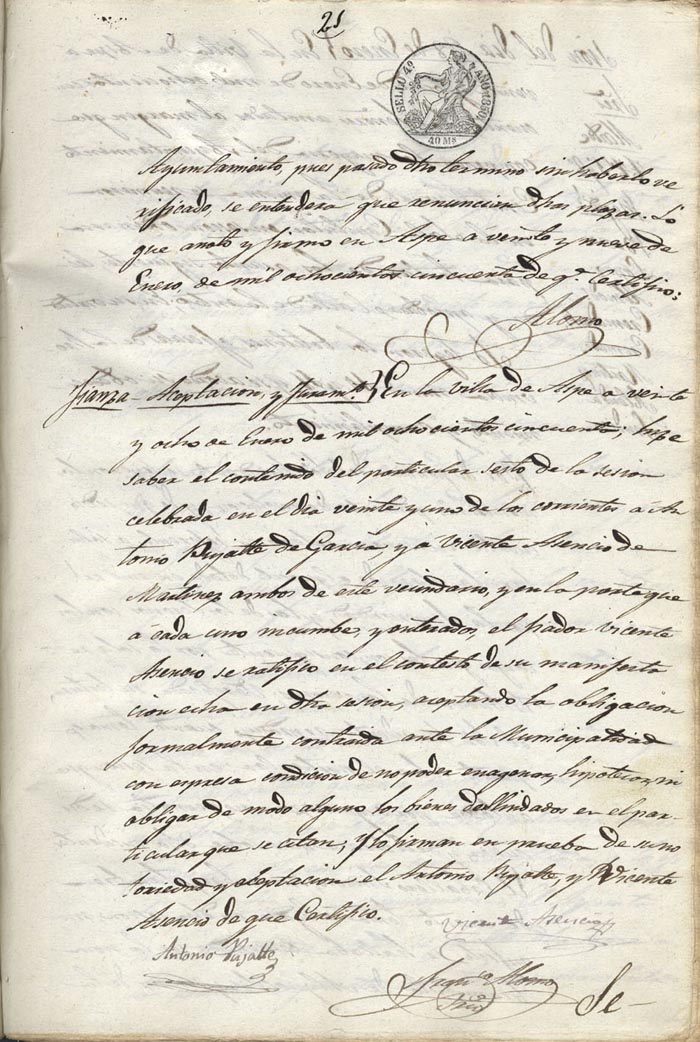 21
SELLO 4º AÑO 1850
40 Ms
Ayuntamiento, pues pasado dho termino sin haberlo ve
rificado, se entendera que renuncian dhas plazas. Lo
que anoto y firmo en Aspe a veinte y nueve de
Enero, de mil ochocientos cincuenta de qe. Certifico:
Alonso
Fianza Aceptacion, y Juramto. } En la villa de Aspe a veinte
y ocho de Enero de mil ochocientos cincuenta; hize
saber el contenido del particular sesto de la sesion
celebrada en el dia veinte y uno de los corrientes a An
tonio Pujalte de Garcia y a Vicente Asencio de
Martinez ambos de este vecindario, y en la parte que
á cada uno incumbe, y enterados, el fiador Vicente
Asencio se ratifico en el contesto de su manifesta
cion echa en dha sesion, aceptando la obligacion
formalmente contraida ante la Municipalidad
con espresa condicion de no poder enagenar, hipotecar, ni
obligar de modo alguno los bienes deslindados en el par-
ticular que se citan; Y lo firman en prueba de su no
toriedad y aceptacion el Antonio Pujalte, y Vicente
Asencio de que Certifico.
Vicente Asencio
Antonio Pujalte
Alonso
Srio
Se-